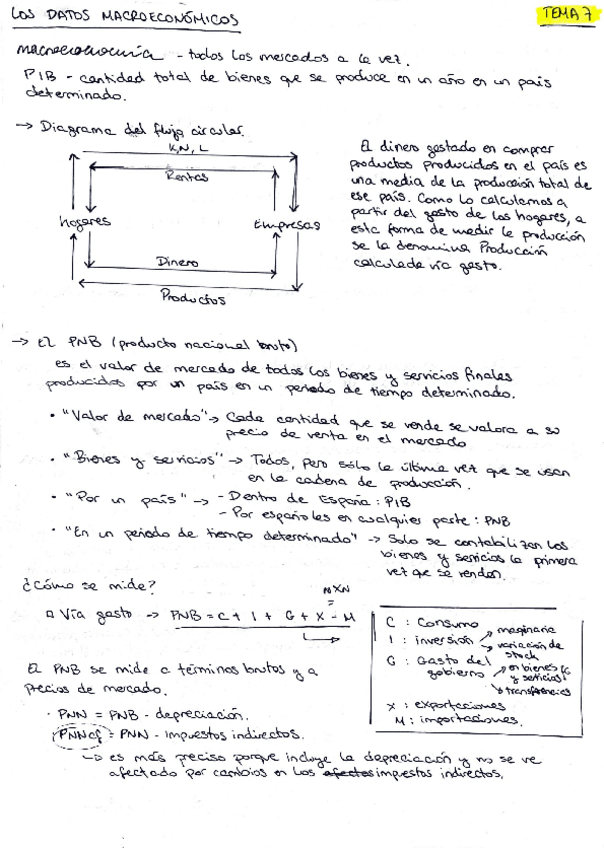 LOS DATOS MACROECONÓMICOS
TEMA 7
macroeconomía - todos los mercados a la vez.
PIB - cantidad total de bienes que se produce en un año en un país
determinado.
→ Diagrama del flujo circular.
K, N, L
Rentas
hogares
Empresas
Dinero
Productos
El dinero gastado en comprar
productos producidos en el país es
una media de la producción total de
ese país. Como lo calculamos a
partir del gasto de los hogares, a
esta forma de medir la producción
se la denomina Producción
calculada vía gasto.
→ El PNB (producto nacional bruto)
es el valor de mercado de todos los bienes y servicios finales
producidos por un país en un periodo de tiempo determinado.
• "Valor de mercado" → Cada cantidad que se vende se valora a su
precio de venta en el mercado
• "Bienes y servicios" → Todos, pero sólo la última vez que se usan
en la cadena de producción.
• "Por un país" → - Dentro de España: PIB
- Por españoles en cualquier parte: PNB
• "En un periodo de tiempo determinado" → Solo se contabilizan los
bienes y servicios la primera
vez que se venden.
¿Cómo se mide?
NXN
=
□ Vía gasto → PNB = C + I + G + X - M
C : Consumo
I : inversión → maquinaria
→ variación de
stock
G : Gasto del
gobierno → en bienes
y servicios
→ transferencias
X : exportaciones
M : importaciones.
El PNB se mide a términos brutos y a
precios de mercado.
· PNN = PNB - depreciación.
PNNcf = PNN - impuestos indirectos.
→ es más preciso porque incluye la depreciación y no se ve
afectado por cambios en los afectos impuestos indirectos.